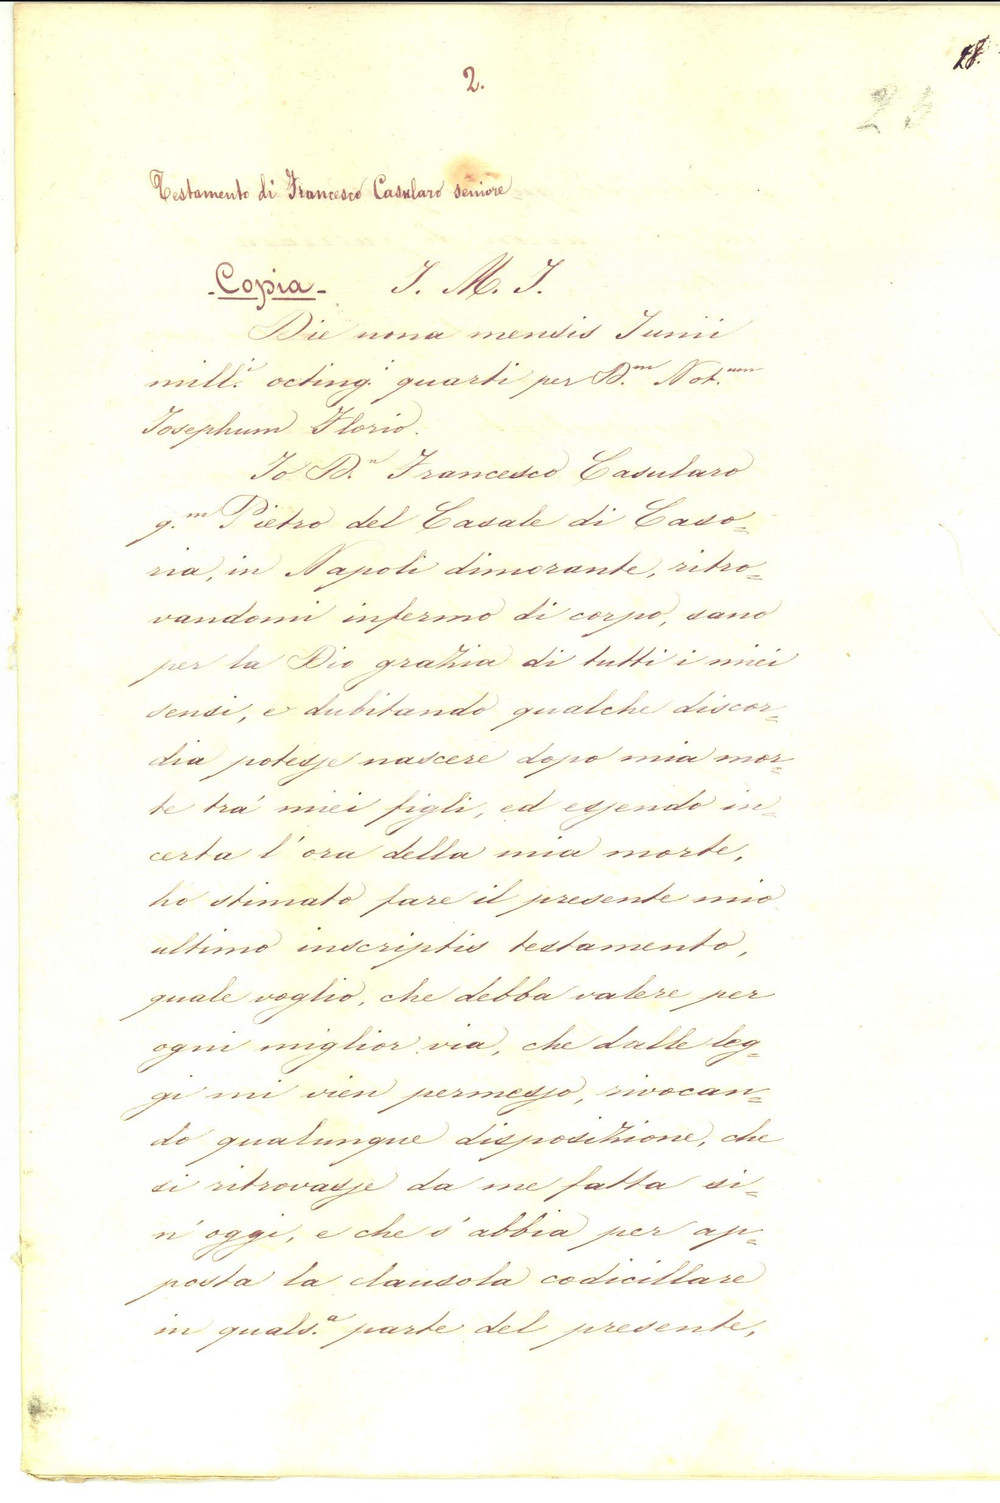 28.
2.
25
Testamento di Francesco Casularo seniore
- Copia - J. M. J.
Die nona mensis Junii
mill.i octing.i quarti per D.m Not.um
Josephum Florio.
Io D.n Francesco Casularo
q.m Pietro del Casale di Caso=
ria, in Napoli dimorante, ritro=
vandomi infermo di corpo, sano
per la Dio grazia di tutti i miei
sensi, e dubitando qualche discor=
dia potesse nascere dopo mia mor=
te trà miei figli, ed essendo in=
certa l'ora della mia morte,
ho stimato fare il presente mio
ultimo inscriptis testamento,
quale voglio, che debba valere per
ogni miglior via, che dalle leg=
gi mi vien permesso, rivocan=
do qualunque disposizione, che
si ritrovasse da me fatta si=
n'oggi, e che s'abbia per ap=
posta la clausola codicillare
in quals.a parte del presente,